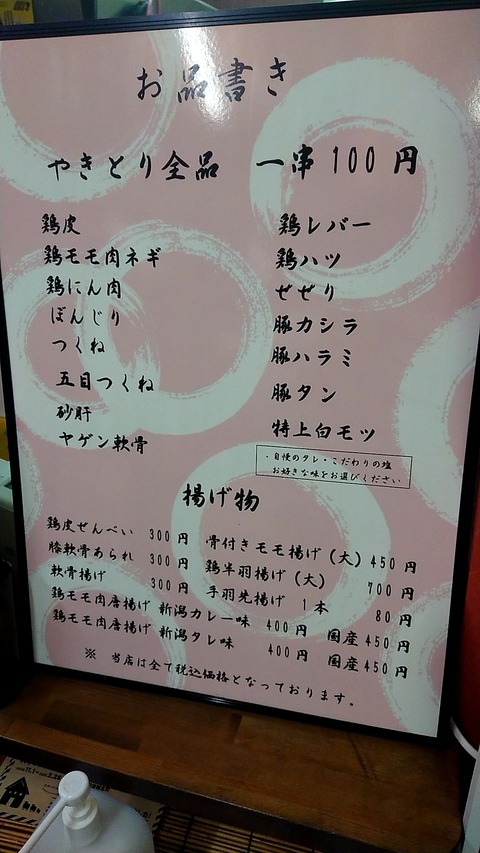 お品書き
やきとり全品 一串 100 円
鶏皮
鶏モモ肉ネギ
鶏にん肉
ぼんじり
つくね
五目つくね
砂肝
ヤゲン軟骨
鶏レバー
鶏ハツ
せせり
豚カシラ
豚ハラミ
豚タン
特上白モツ
・自慢のタレ・こだわりの塩
お好きな味をお選びください
揚げ物
鶏皮せんべい 300 円
膝軟骨あられ 300 円
軟骨揚げ 300 円
骨付きモモ揚げ (大) 450 円
鶏半羽揚げ (大) 700 円
手羽先揚げ 1本 80 円
鶏モモ肉唐揚げ 新潟カレー味 400 円 国産 450 円
鶏モモ肉唐揚げ 新潟タレ味 400 円 国産 450 円
※ 当店は全て税込価格となっております。